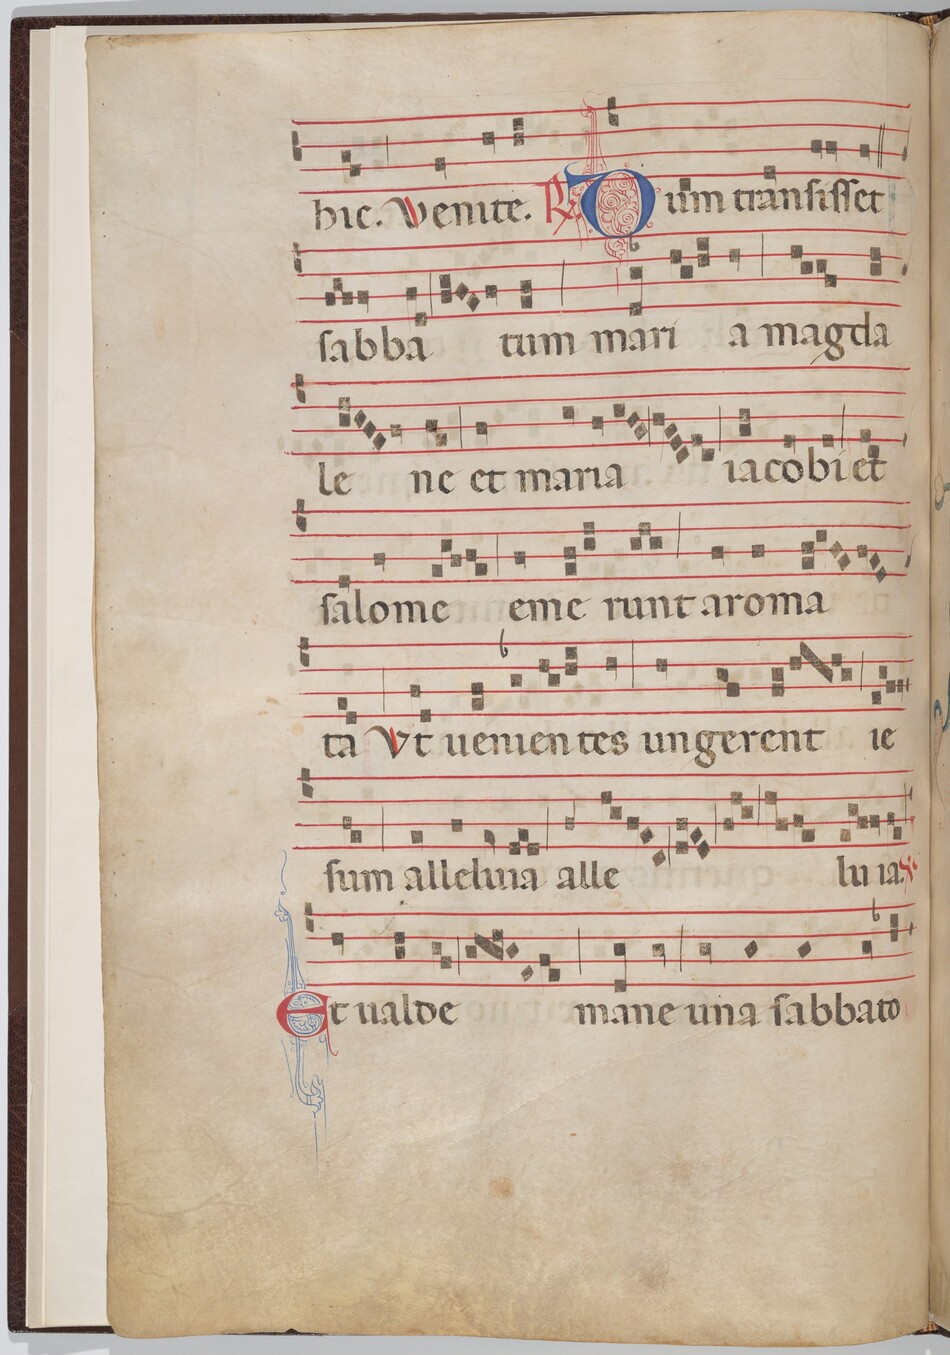 hic. Venite. ℟ Dum transisset
sabba tum mari a magda
le ne et maria iacobi et
salome eme runt aroma
ta Vt uenientes ungerent ie
sum alleluia alle lu ia.
Et ualde mane una sabbato